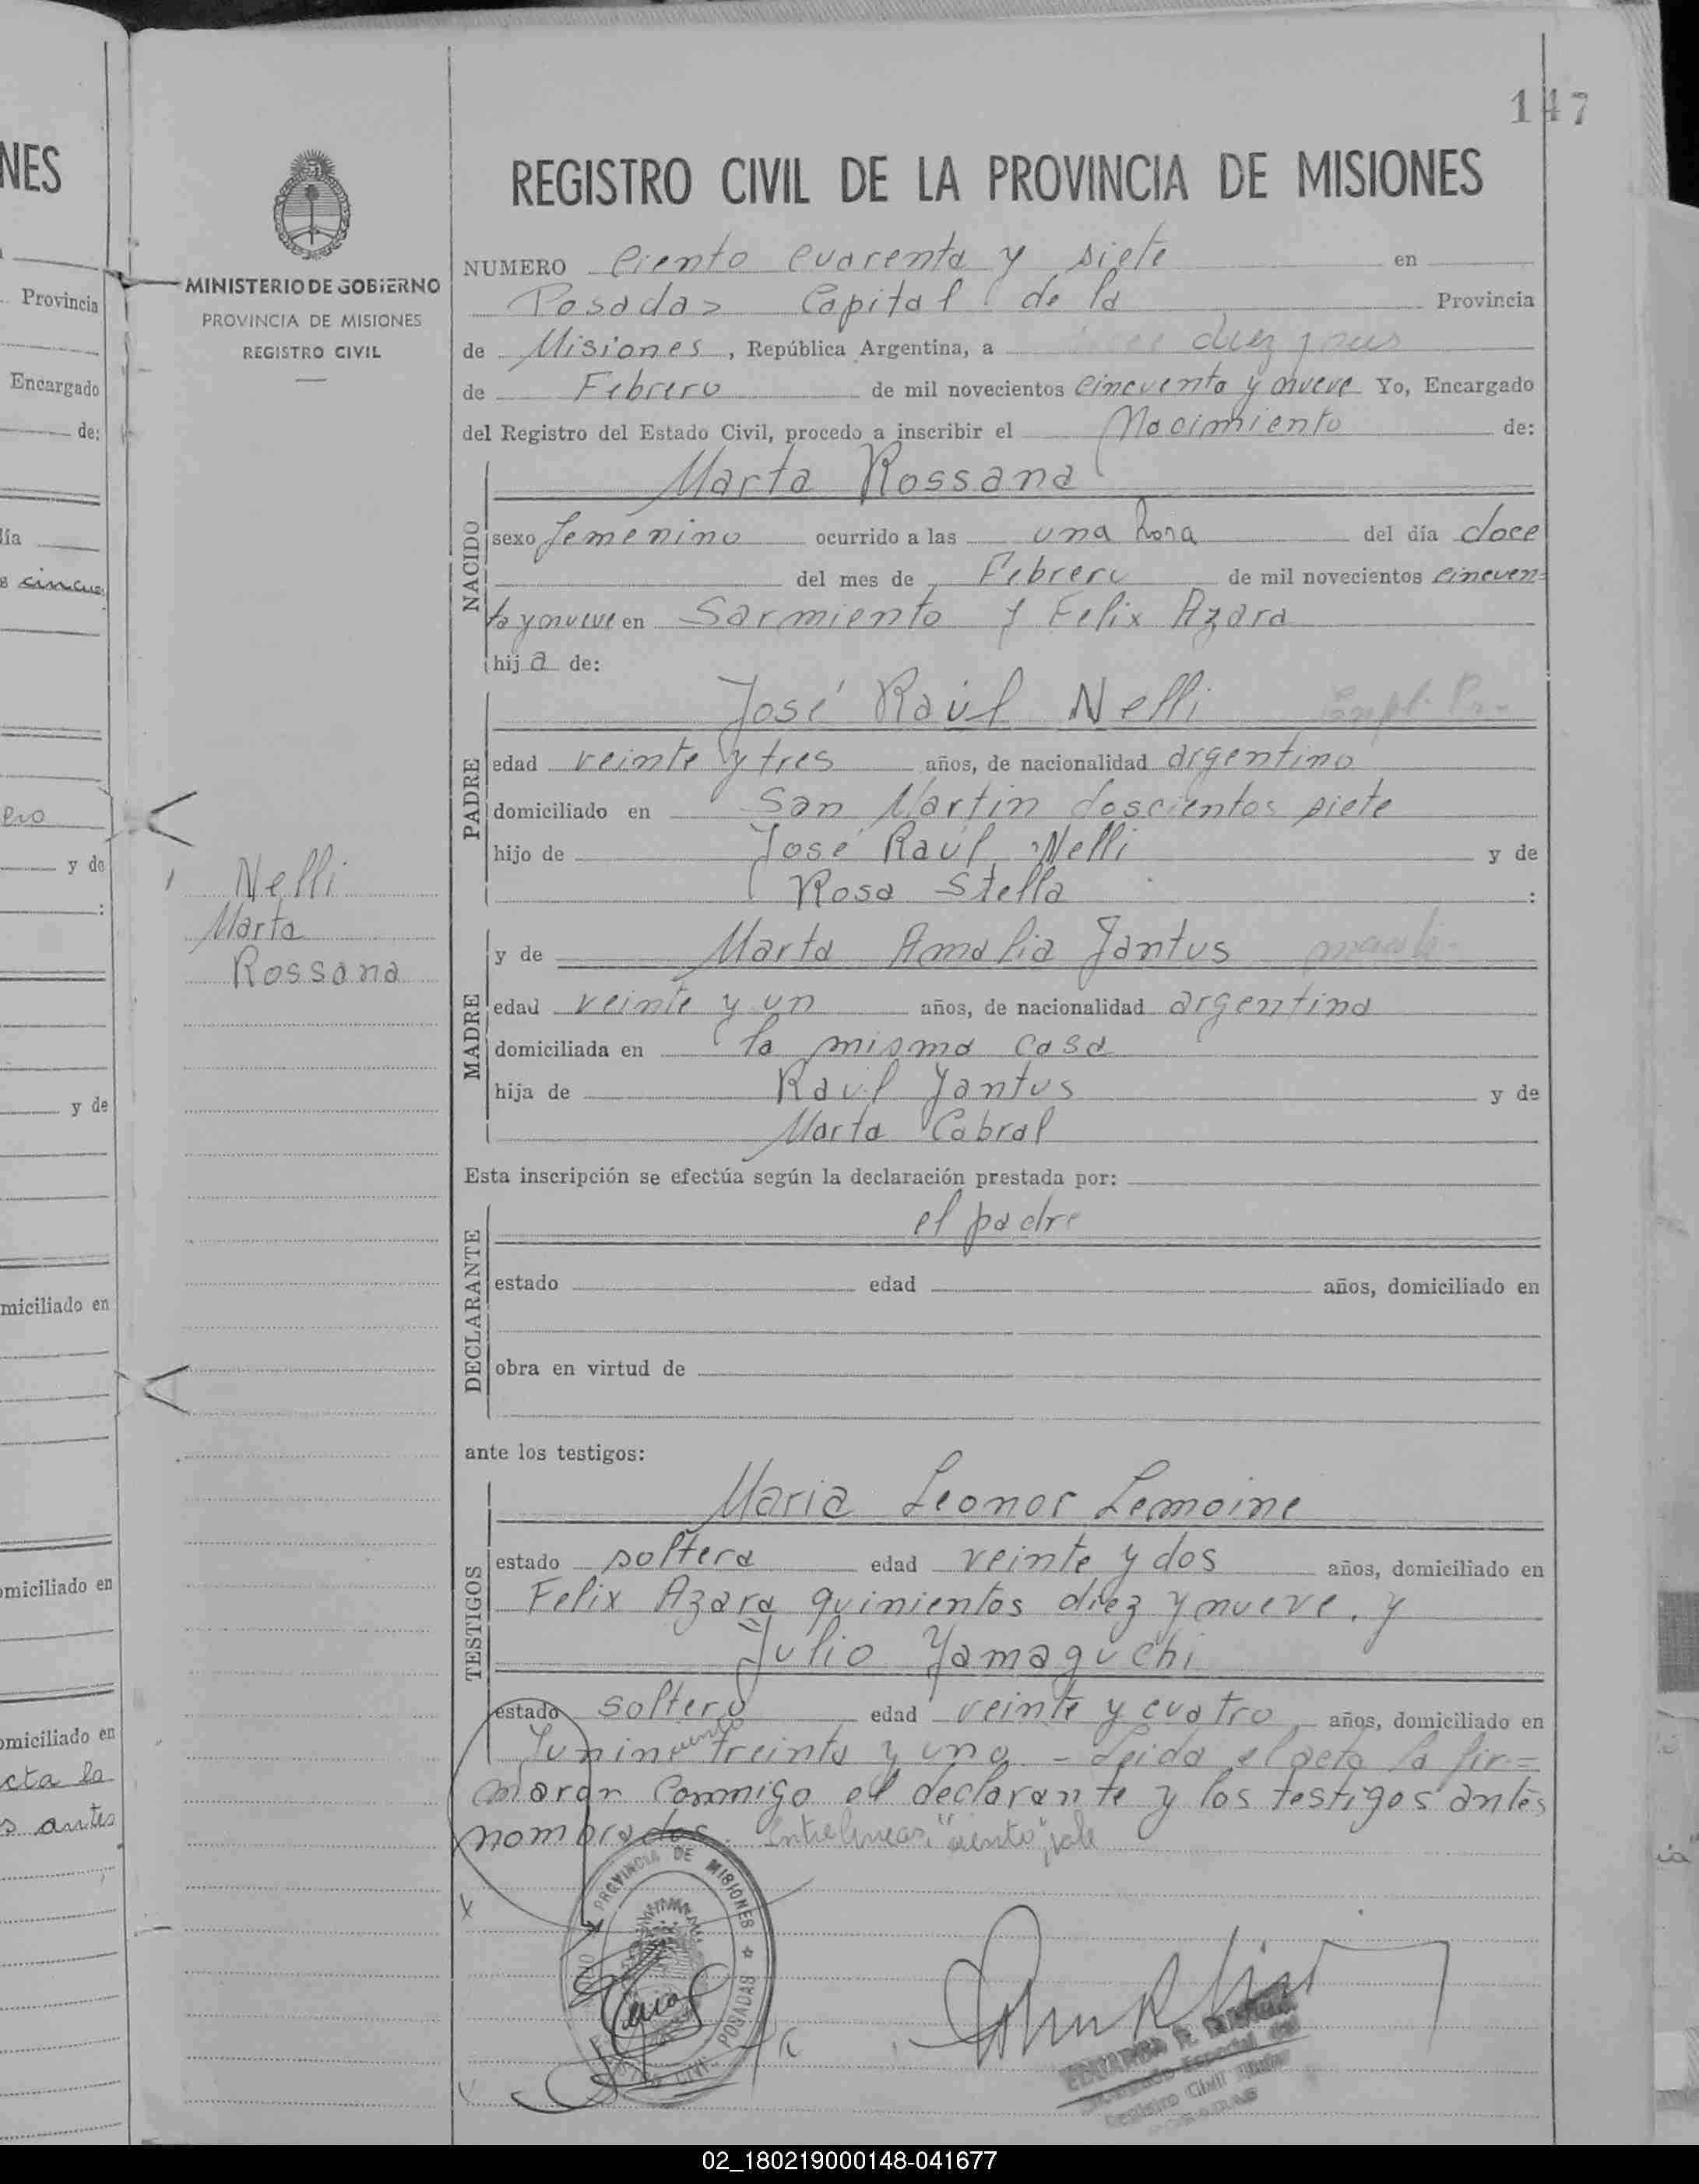 147
NES
REGISTRO CIVIL DE LA PROVINCIA DE MISIONES
MINISTERIO DE GOBIERNO
PROVINCIA DE MISIONES
REGISTRO CIVIL
NUMERO Ciento cuarenta y siete en
Posadas Capital de la Provincia
de Misiones, República Argentina, a diez y
de Febrero de mil novecientos cincuenta y nueve Yo, Encargado
del Registro del Estado Civil, procedo a inscribir el Nacimiento de:
NACIDO
Marta Rossana
sexo femenino ocurrido a las una hora del día doce
del mes de Febrero de mil novecientos cincuen=
ta y nueve en Sarmiento y Felix Azara
hija de:
PADRE
José Raúl Nelli
edad veinte y tres años, de nacionalidad argentino
domiciliado en San Martin doscientos siete
hijo de José Raúl Nelli y de
Rosa Stella :
Nelli
Marta
Rossana
MADRE
y de Marta Amalia Yantus
edad veinte y un años, de nacionalidad argentina
domiciliada en la misma casa
hija de Raul Yantus y de
Marta Cabral
Esta inscripción se efectúa según la declaración prestada por:
DECLARANTE
el padre
estado edad años, domiciliado en
obra en virtud de
ante los testigos:
TESTIGOS
Maria Leonor Lemoine
estado soltera edad veinte y dos años, domiciliado en
Felix Azara quinientos diez y nueve, y
Julio Yamaguchi
estado soltero edad veinte y cuatro, años, domiciliado en
Junin ciento treinta y uno - Leida el acta la fir=
maron conmigo el declarante y los testigos antes
nombrados. Entrelineas: "ciento", vale
PROVINCIA DE MISIONES
POSADAS
Provincia
Encargado
de:
día
s cincue
y de
:
y de
miciliado en
omiciliado en
omiciliado en
cta la
s antes
02_180219000148-041677